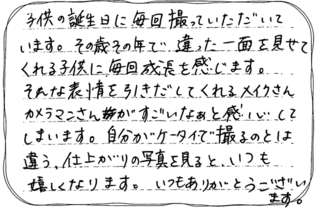 子供の誕生日に毎回撮っていただいて
います。その歳その年で、違った一面を見せて
くれる子供に毎回成長を感じます。
そんな表情を引きだしてくれるメイクさん
カメラマンさんがすごいなぁと感心して
しまいます。自分がケータイで撮るのとは
違う、仕上がりの写真を見ると、いつも
嬉しくなります。いつもありがとうござい
ます。